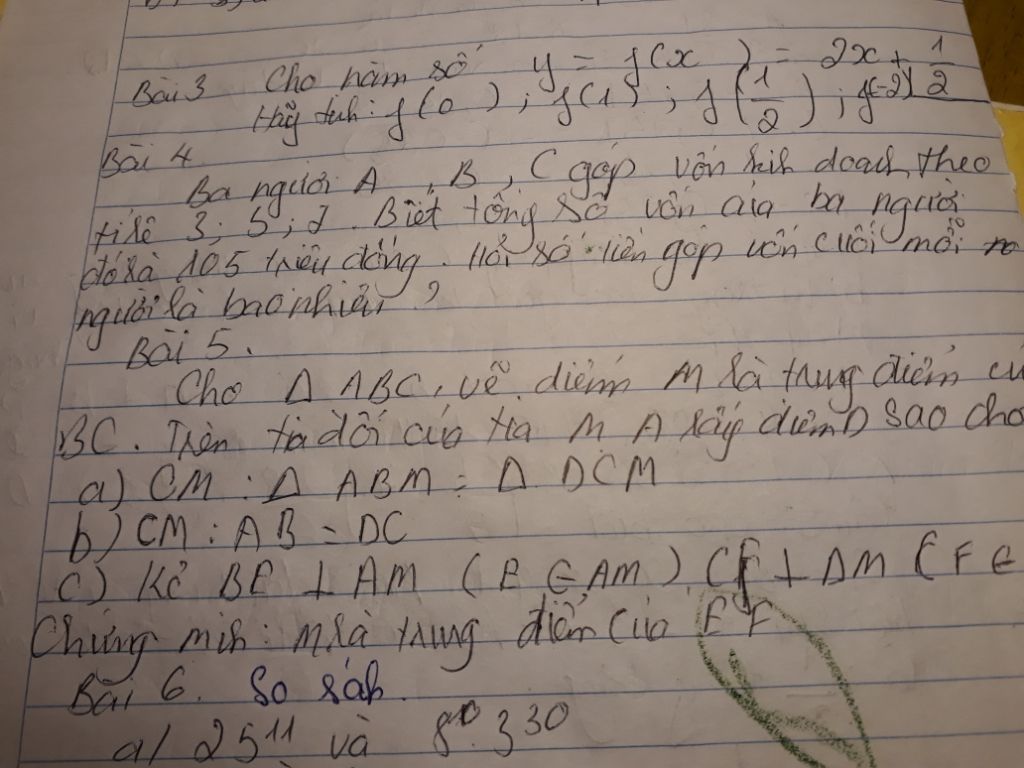 Bài 3 Cho hàm số y = f(x) = 2x + 1/2
Hãy tính: f(0); f(1); f(1/2); f(-2)
Bài 4
Ba người A, B, C góp vốn kinh doanh theo
tỉ lệ 3; 5; 7. Biết tổng số vốn của ba người
đó là 105 triệu đồng. Hỏi số tiền góp vốn cuối mỗi
người là bao nhiêu?
Bài 5.
Cho Δ ABC, vẽ điểm M là trung điểm củ
BC. Trên tia đối của tia MA lấy điểm D sao cho
a) CM: Δ ABM = Δ DCM
b) CM: AB = DC
c) Kẻ BE ⊥ AM (E ∈ AM) CF ⊥ DM (F ∈
Chứng minh: M là trung điểm của EF
Bài 6. So sánh.
a/ 25¹¹ và 8¹⁰.3³⁰